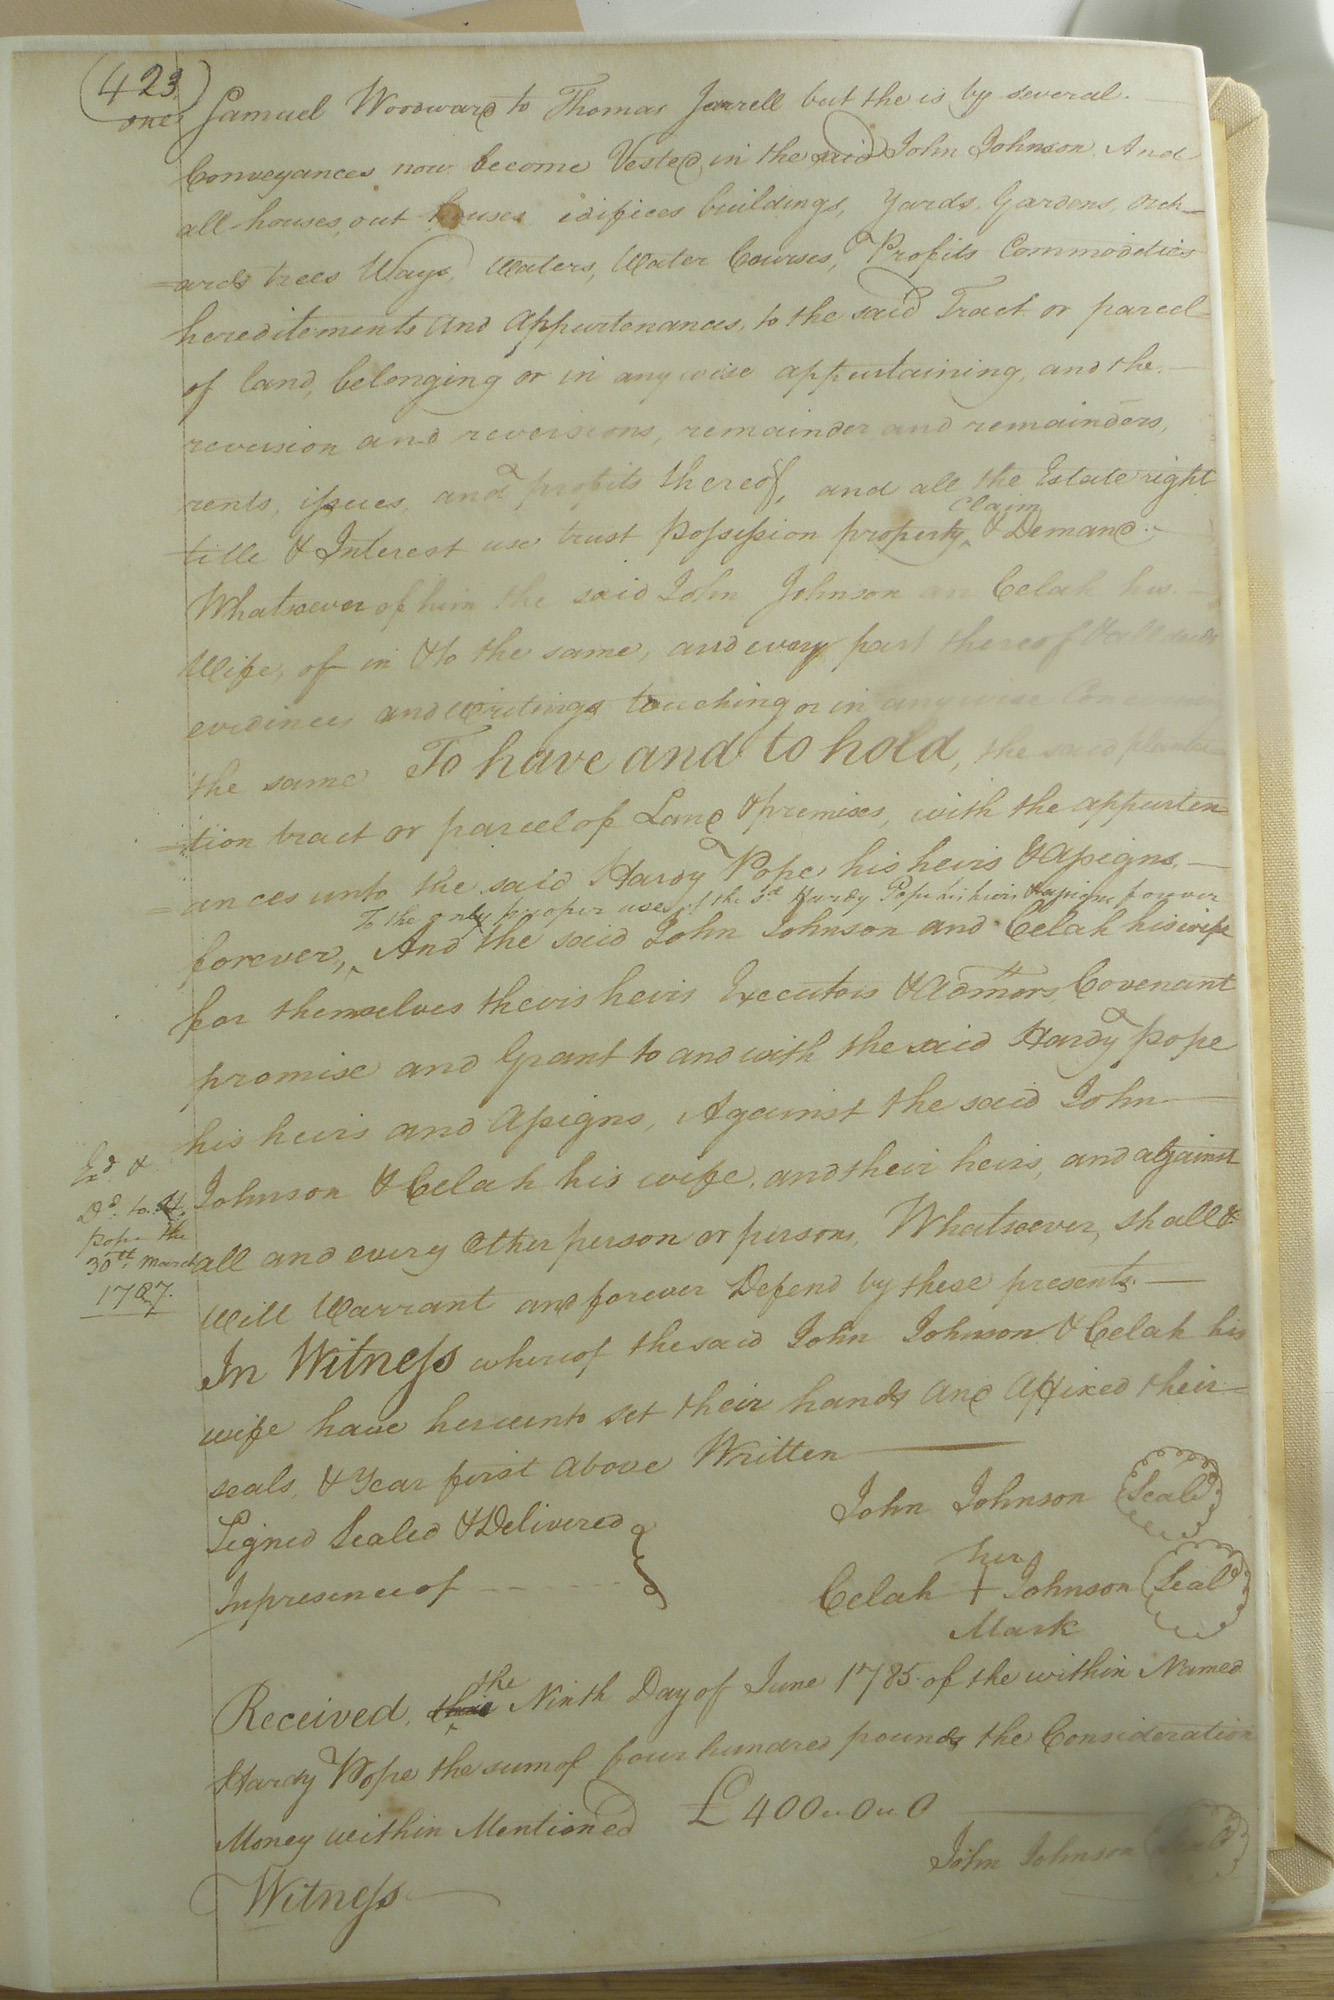 (423)
one Samuel Woodward to Thomas Jarrell but the is by several
Conveyances now become Vested in the said John Johnson And
all houses, out houses idifices buildings, Yards, Gardens, Orch-
=ards trees Ways, Waters, Water Courses, Profits Commodeties
hereditements and appurtenances, to the said Tract or parcel
of land, belonging or in any wise appurtaining, and the
reversion and reversions, remainder and remainders,
rents, issues, and profits thereof, and all the Estate right
Claim
title & Interest use trust possession property ^ & Demand
Whatsoever of him the said John Johnson an Celah his
Wife, of in & to the same, and every part thereof & all deeds
evidinces and writings touching or in any wise Concerning
the same To have and to hold, the said planta-
=tion tract or parcel of Land & premises, with the appurten-
=ances unto the said Hardy Pope his heirs & assigns
To the only proper use of the sd Hardy Pope his heirs & assigns forever
forever, ^ And the said John Johnson and Celah his wife
for themselves theirs heirs Executors & admrs Covenant
promise and Grant to and with the said Hardy pope
his heirs and assigns, Against the said John
Johnson & Celah his wife, and their heirs, and against
all and every other person or persons, Whatsoever, shall &
will Warrant and forever Defend by these presents.
In Witness whereof the said John Johnson & Celah his
wife have hereunto set their hands and affixed their
seals, & Year first above Written
Exd. &
Dd. to H.
pope the
30th March
1787.
Signed Sealed & Delivered
In presence of
John Johnson (Seal)
her
Celah + Johnson (Seal)
Mark
the
Received, this ^ Ninth Day of June 1785 of the within Named
Hardy Pope the sum of four hundred pounds the Consideration
Money within Mentioned £400 " 0 " 0
John Johnson (Seal)
Witness